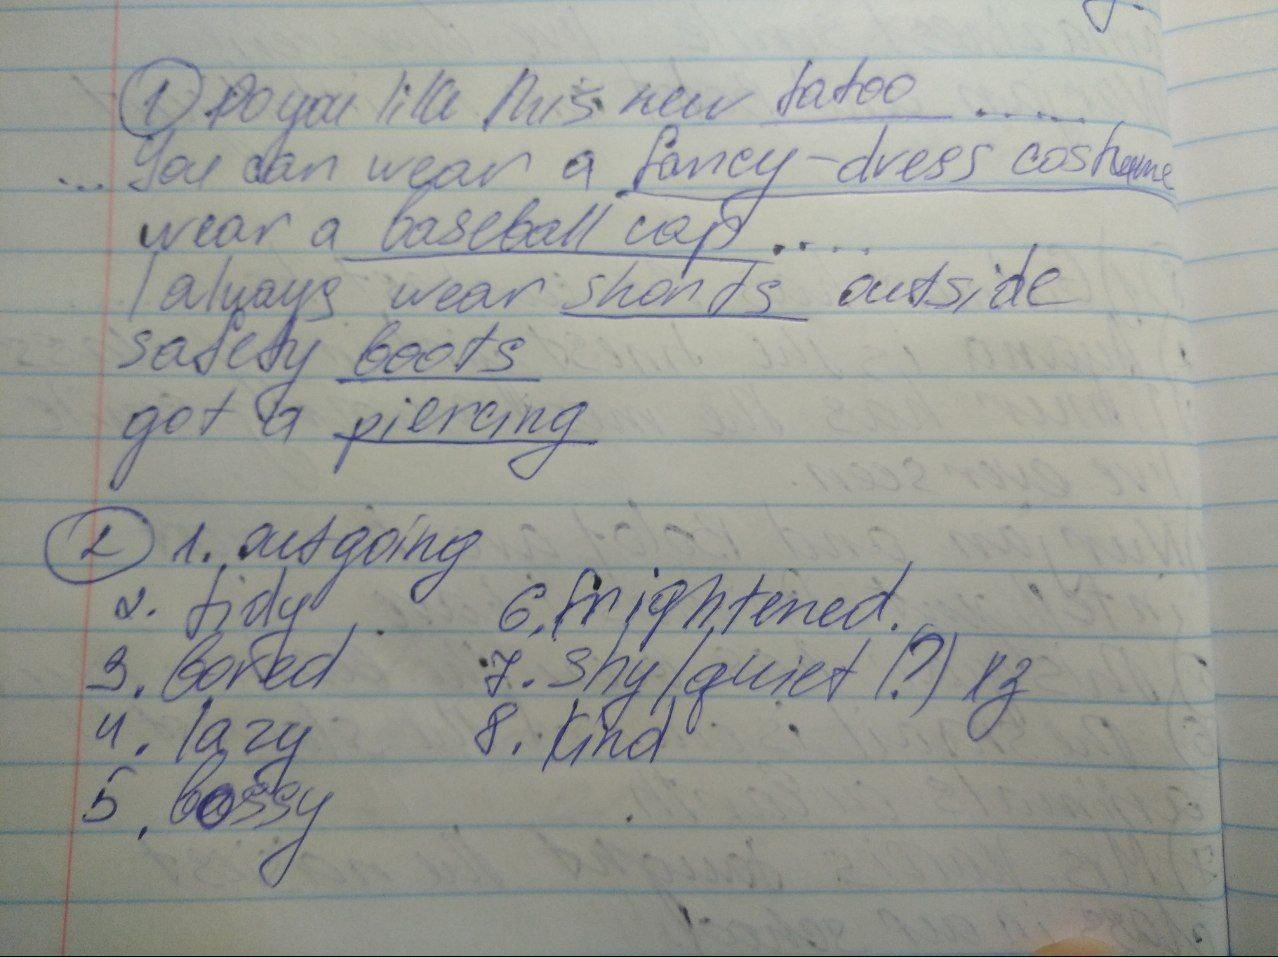 ① Do you like this new tatoo .....
... You can wear a fancy-dress costume
wear a baseball cap ....
I always wear shorts outside
safety boots
got a piercing
② 1. outgoing
2. tidy 6. frightened.
3. bored 7. shy/quiet (?) хз
4. lazy 8. kind
5. bossy